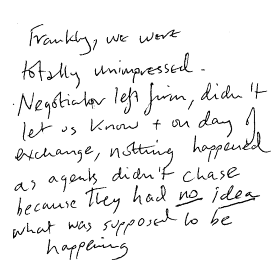 Frankly, we were
totally unimpressed.
Negotiator left firm, didn't
let us know + on day of
exchange, nothing happened
as agents didn't chase
because they had no idea
what was supposed to be
happening